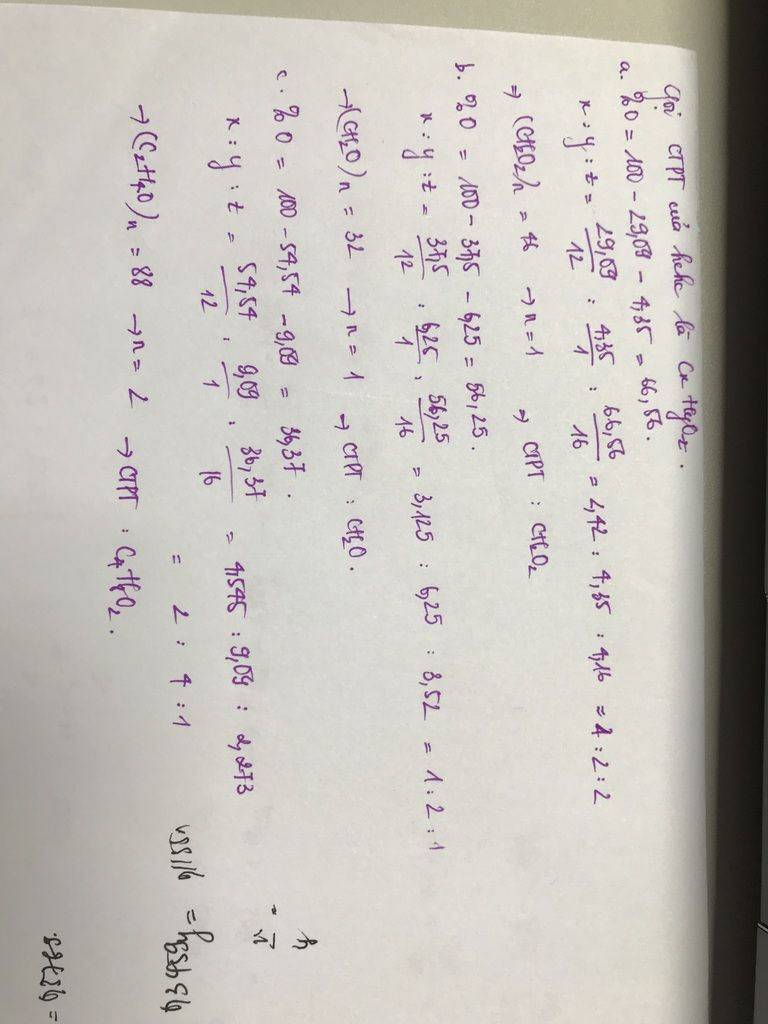 Gọi CTPT của hchc là CxHyOz.
a. %O = 100 - 29,09 - 4,35 = 66,56.
x : y : z = 29,09/12 : 4,35/1 : 66,56/16 = 2,42 : 4,35 : 4,16 = 1 : 2 : 2
⇒ (CH2O2)n = 46 → n = 1 ⇒ CTPT : CH2O2
b. %O = 100 - 37,5 - 6,25 = 56,25.
x : y : z = 37,5/12 : 6,25/1 : 56,25/16 = 3,125 : 6,25 : 3,52 = 1 : 2 : 1
→ (CH2O)n = 32 → n = 1 → CTPT : CH2O.
c. %O = 100 - 54,54 - 9,09 = 36,37.
x : y : z = 54,54/12 : 9,09/1 : 36,37/16 = 4,545 : 9,09 : 2,273
= 2 : 4 : 1
→ (C2H4O)n = 88 → n = 2 → CTPT : C4H8O2.